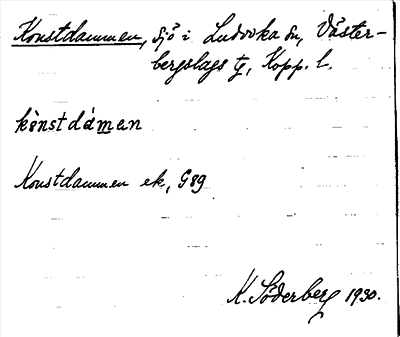 Konstdammen, sjö i Ludvika sn, Väster-
bergslags tg, Kopp. l.
kònstdámen
Konstdammen ek, G89
K. Söderberg 1930.